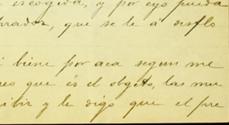 escogida, y por eyo pueda
brador, que se le a
i biene por aca segun me
es que és el obgeto, las mu
ibir y le digo que el pre